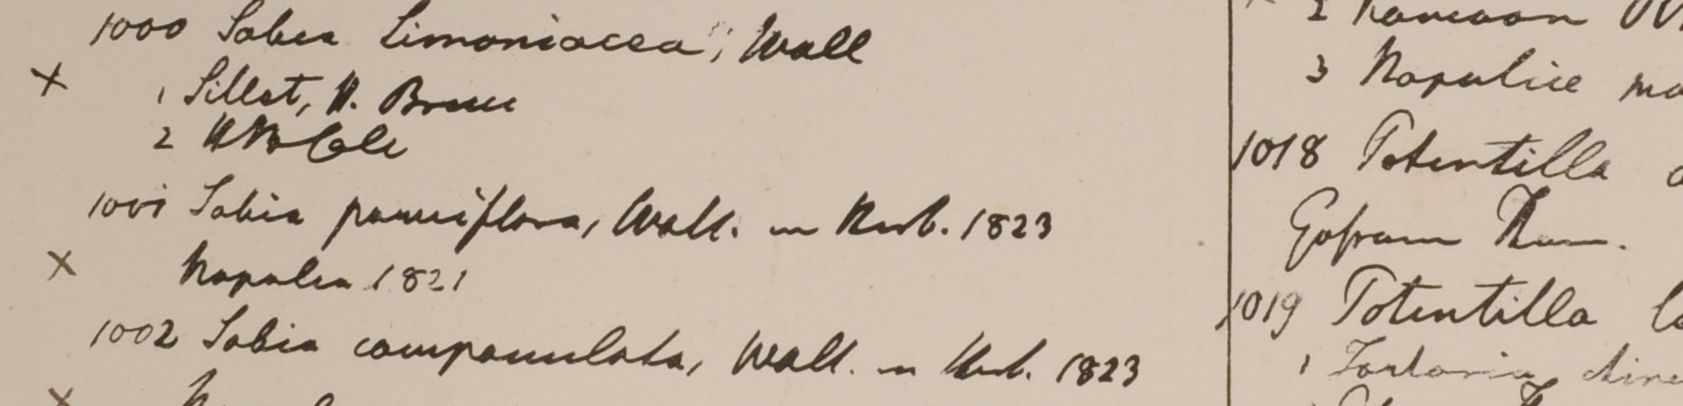 1000 Sabia Limoniacea, Wall
× 1 Sillet, H. Bruce
2 HBC
1001 Sabia parviflora, Wall. in Herb. 1823
× Napalia 1821
1002 Sabia campanulata, Wall. in Herb. 1823
×
2 Kamaon
3 Napaliae
1018 Potentilla
Gossam Than.
1019 Potentilla
1 Tartaria